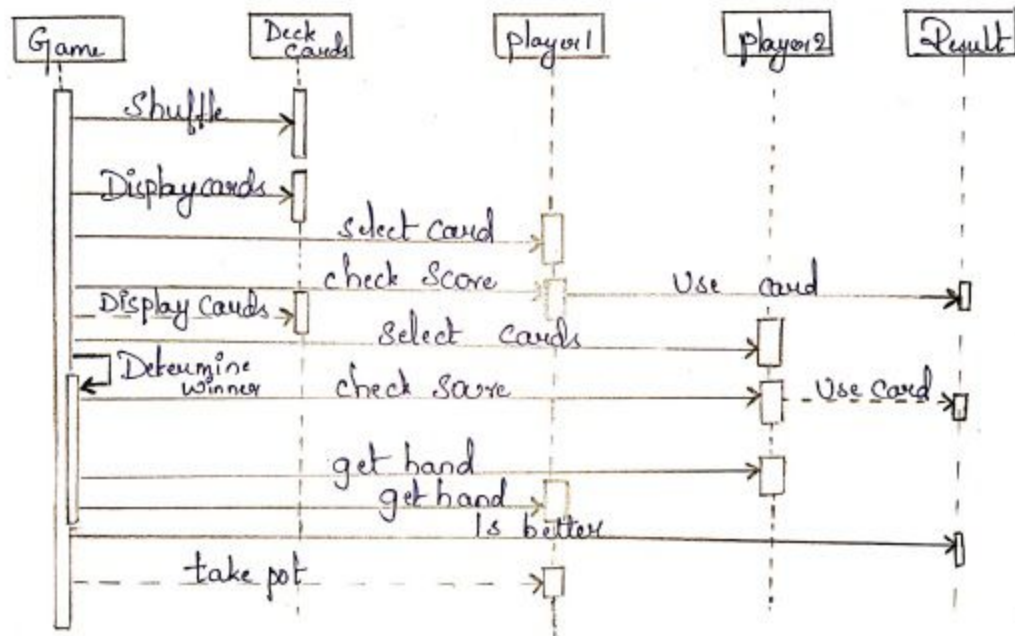 Game
Deck
Cards
player1
player2
Result
Shuffle
Display cards
select card
check Score
Use card
Display Cards
select cards
Determine
winner
check Score
Use Card
get hand
get hand
Is better
take pot